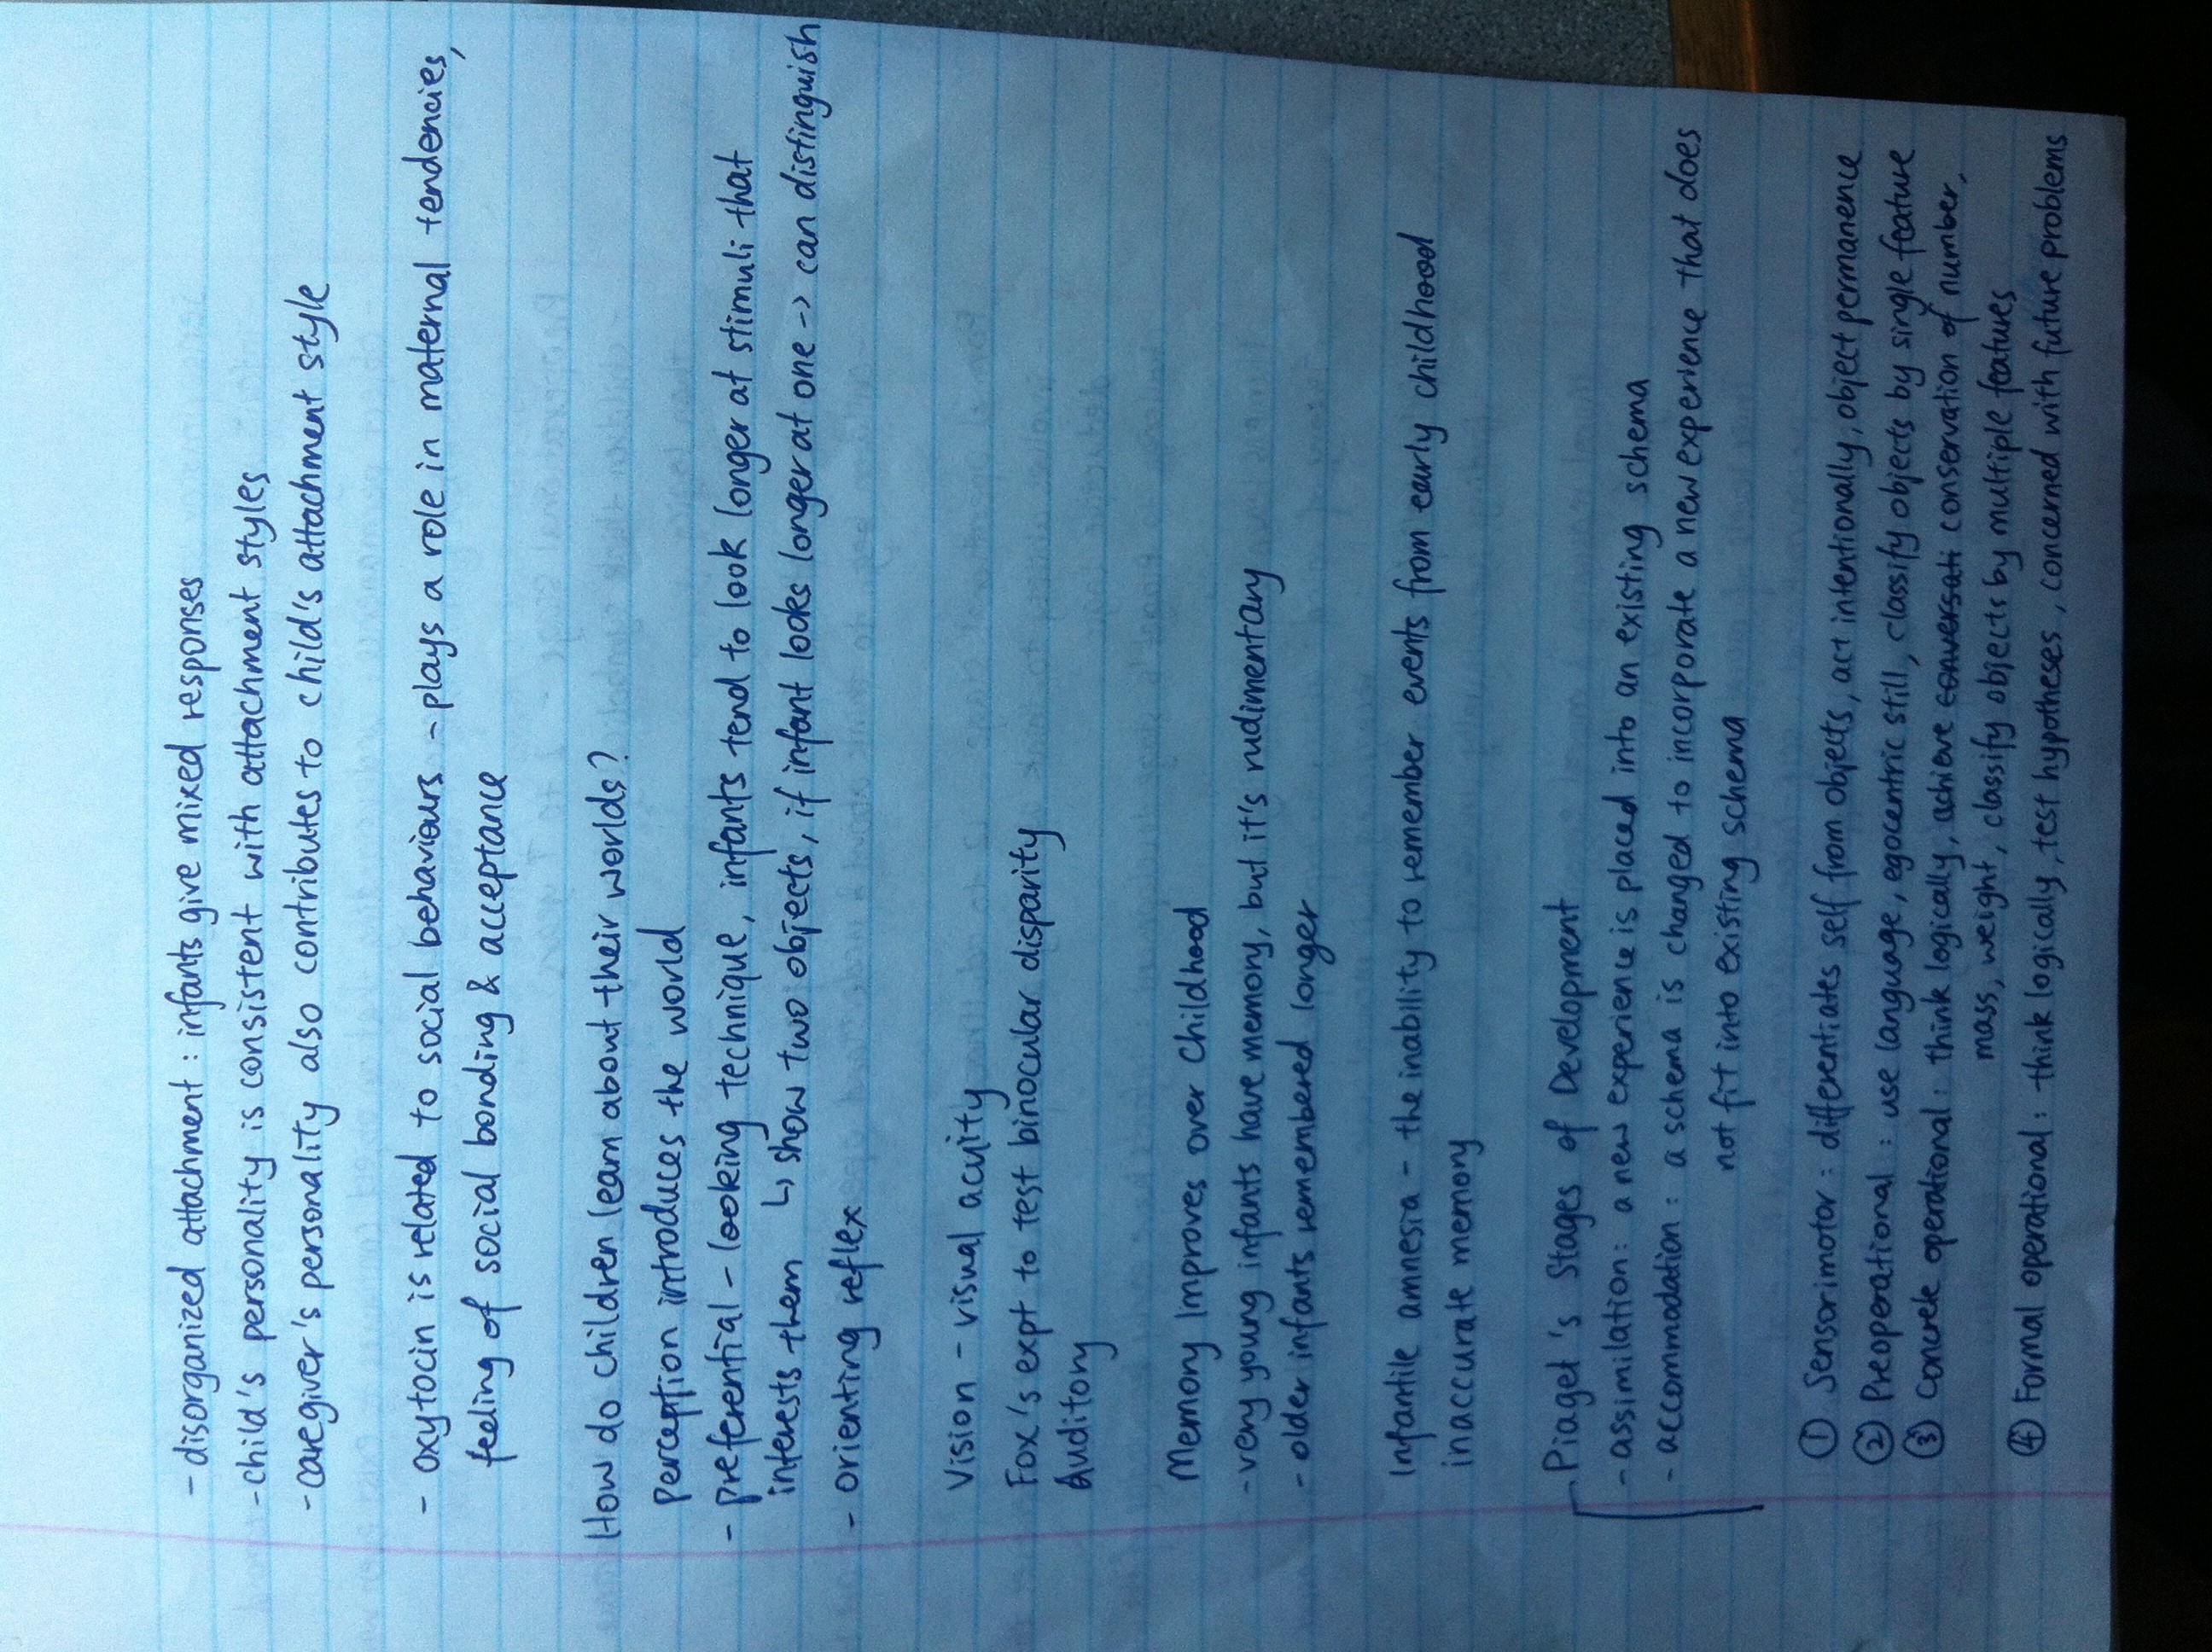 - disorganized attachment : infants give mixed responses
- child's personality is consistent with attachment styles
- caregiver's personality also contributes to child's attachment style
- oxytocin is related to social behaviours - plays a role in maternal tendencies,
feeling of social bonding & acceptance
How do children learn about their worlds?
perception introduces the world
- preferential-looking technique, infants tend to look longer at stimuli that
interests them ↳ show two objects, if infant looks longer at one -> can distinguish
- orienting reflex
Vision - visual acuity
Fox's expt to test binocular disparity
Auditory
Memory Improves over Childhood
- very young infants have memory, but it's rudimentary
- older infants remembered longer
Infantile amnesia - the inability to remember events from early childhood
inaccurate memory
Piaget's Stages of Development
- assimilation: a new experience is placed into an existing schema
- accommodation : a schema is changed to incorporate a new experience that does
not fit into existing schema
① Sensorimotor : differentiates self from objects, act intentionally, object permanence
② Preoperational : use language, egocentric still, classify objects by single feature
③ Concrete operational : think logically, achieve conversati conservation of number,
mass, weight, classify objects by multiple features
④ Formal operational : think logically, test hypotheses, concerned with future problems